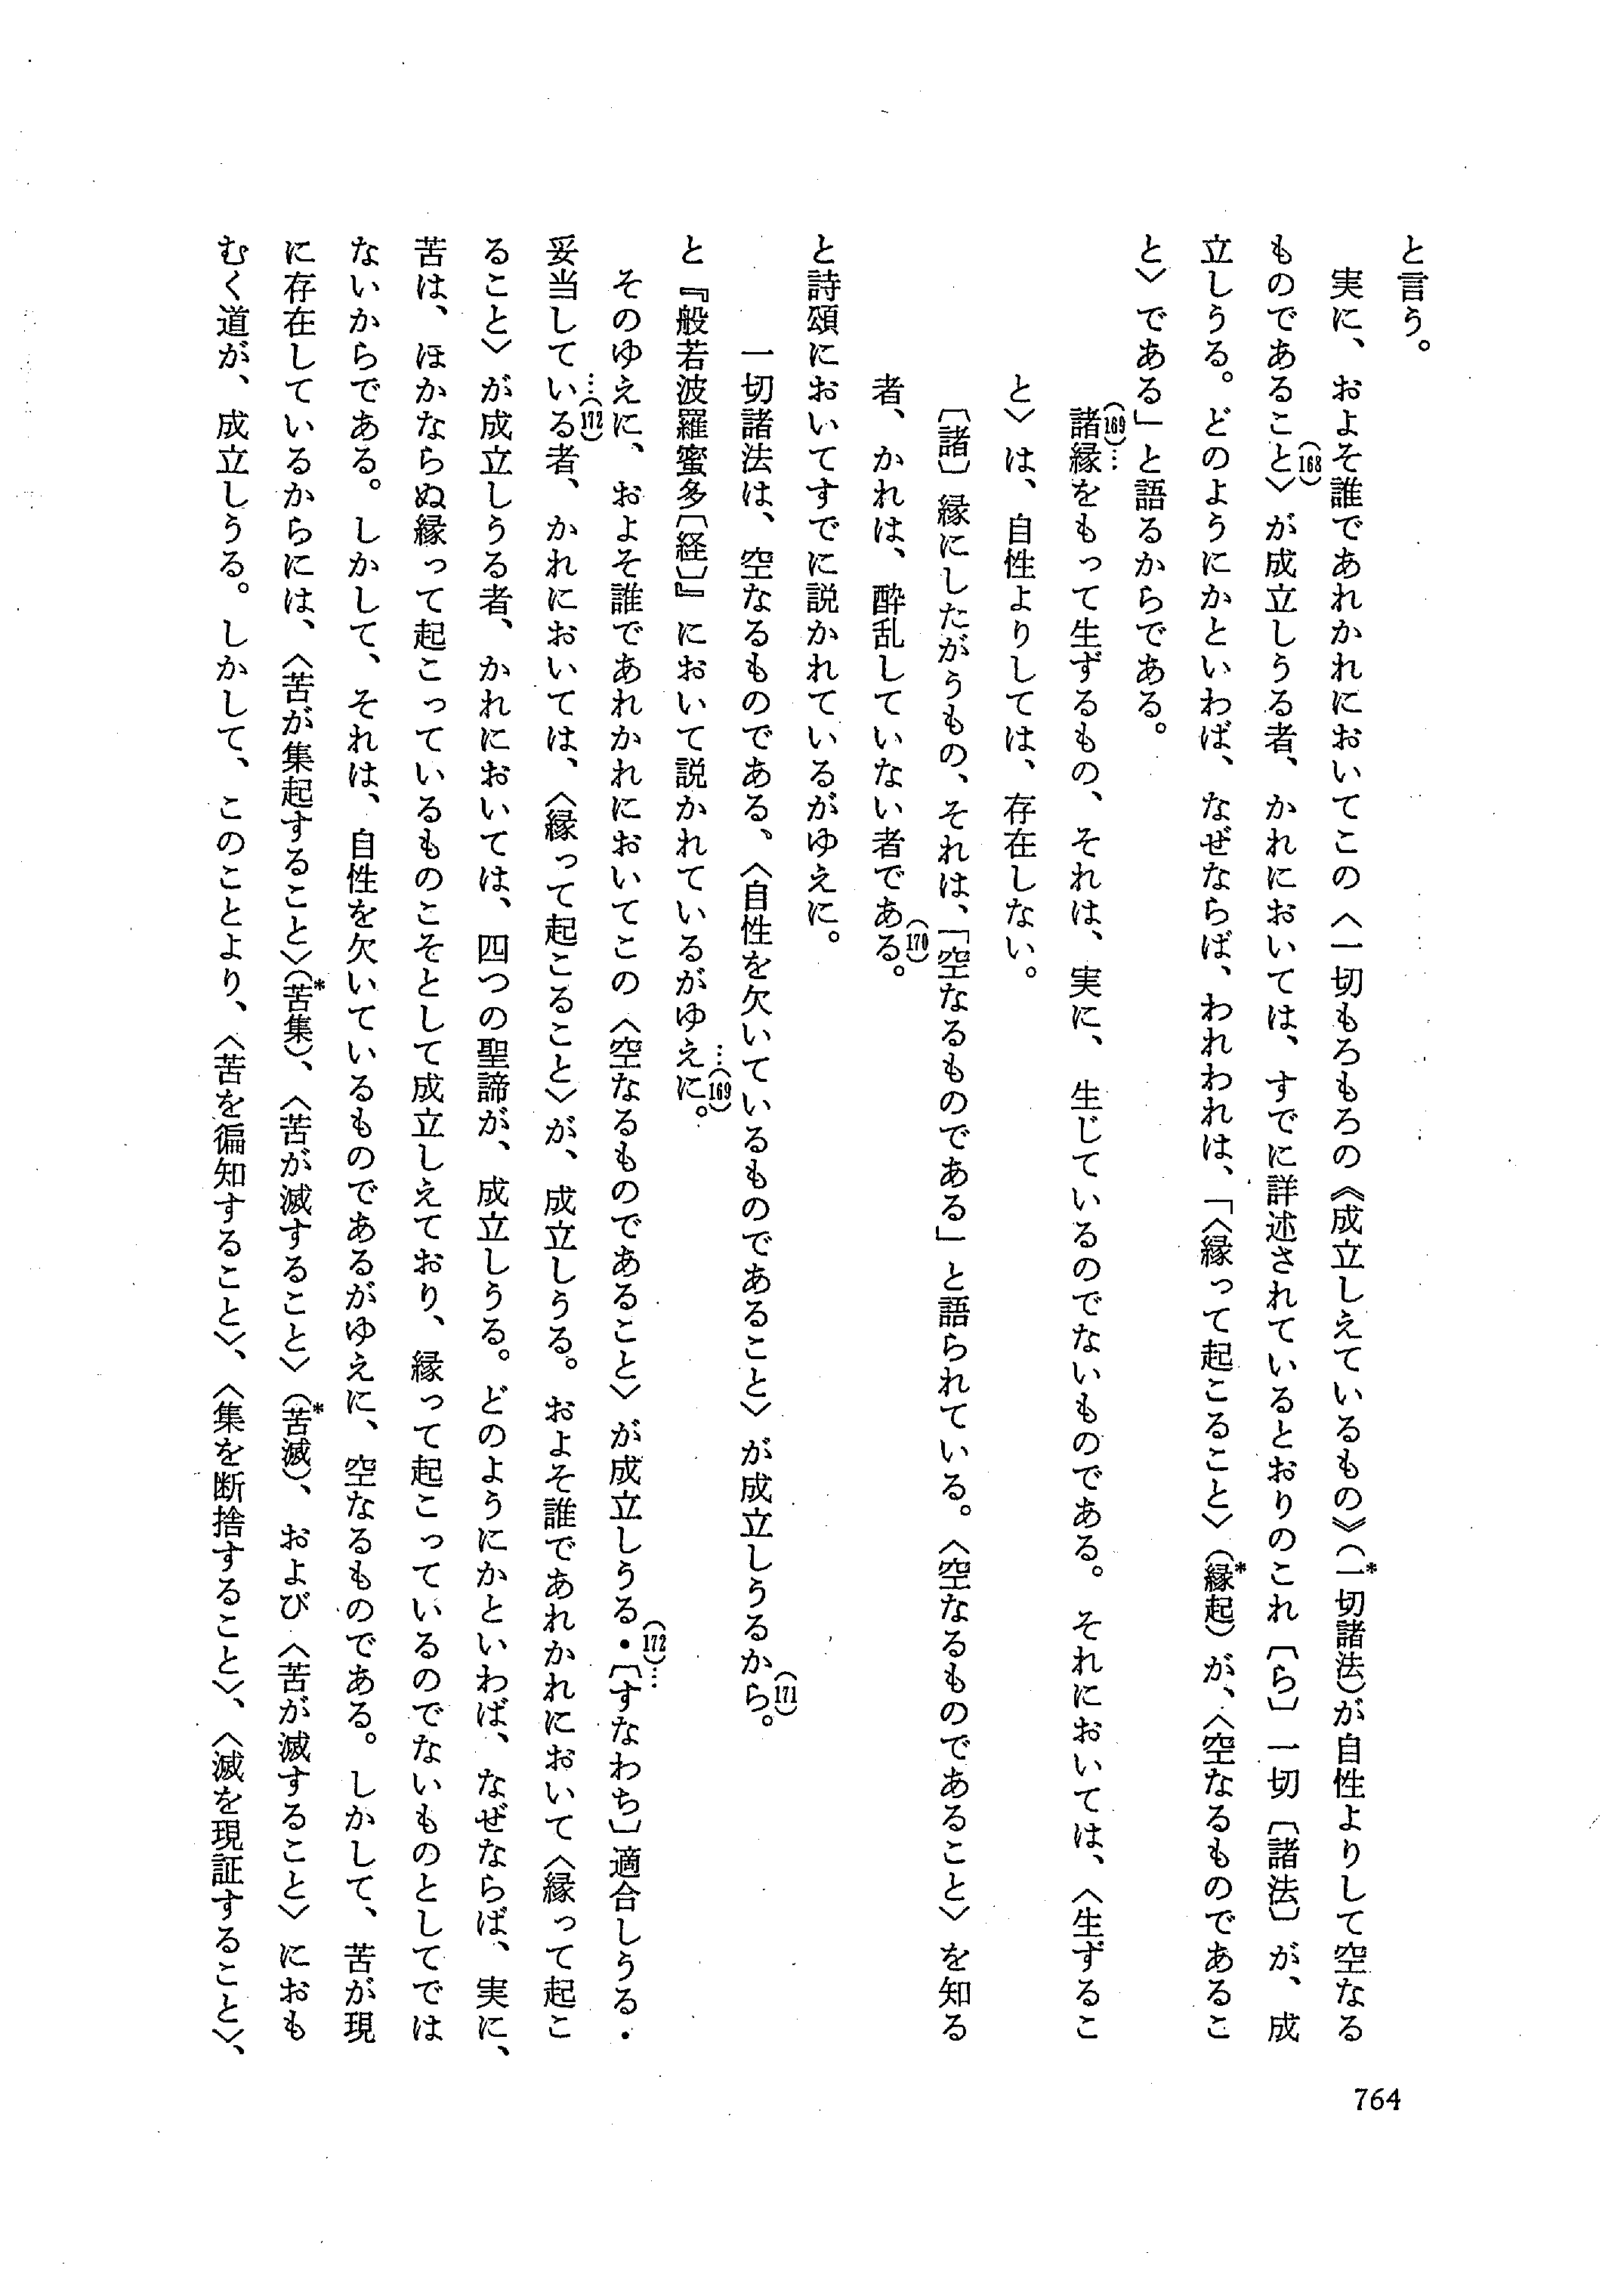 と言う。
実に、およそ誰であれかれにおいてこの〈一切もろもろの《成立しえているもの》(*一切諸法)が自性よりして空なる
ものであること(168)〉が成立しうる者、かれにおいては、すでに詳述されているとおりのこれ〔ら〕一切〔諸法〕が、成
立しうる。どのようにかといわば、なぜならば、われわれは、「〈縁って起こること〉(*縁起)が、〈空なるものであるこ
と〉である」と語るからである。
(169)…諸縁をもって生ずるもの、それは、実に、生じているのでないものである。それにおいては、〈生ずるこ
と〉は、自性よりしては、存在しない。
〔諸〕縁にしたがうもの、それは、「空なるものである」と語られている。〈空なるものであること〉を知る
者、かれは、酔乱していない者である(170)。
と詩頌においてすでに説かれているがゆえに。
一切諸法は、空なるものである、〈自性を欠いているものであること〉が成立しうるから(171)。
と『般若波羅蜜多〔経〕』において説かれているがゆえに…(169)。
そのゆえに、およそ誰であれかれにおいてこの〈空なるものであること〉が成立しうる・(172)…〔すなわち〕適合しうる・
妥当している…(172)者、かれにおいては、〈縁って起こること〉が、成立しうる。およそ誰であれかれにおいて〈縁って起こ
ること〉が成立しうる者、かれにおいては、四つの聖諦が、成立しうる。どのようにかといわば、なぜならば、実に、
苦は、ほかならぬ縁って起こっているものこそとして成立しえており、縁って起こっているのでないものとしてでは
ないからである。しかして、それは、自性を欠いているものであるがゆえに、空なるものである。しかして、苦が現
に存在しているからには、〈苦が集起すること〉(*苦集)、〈苦が滅すること〉(*苦滅)、および〈苦が滅すること〉におも
むく道が、成立しうる。しかして、このことより、〈苦を徧知すること〉、〈集を断捨すること〉、〈滅を現証すること〉、
764